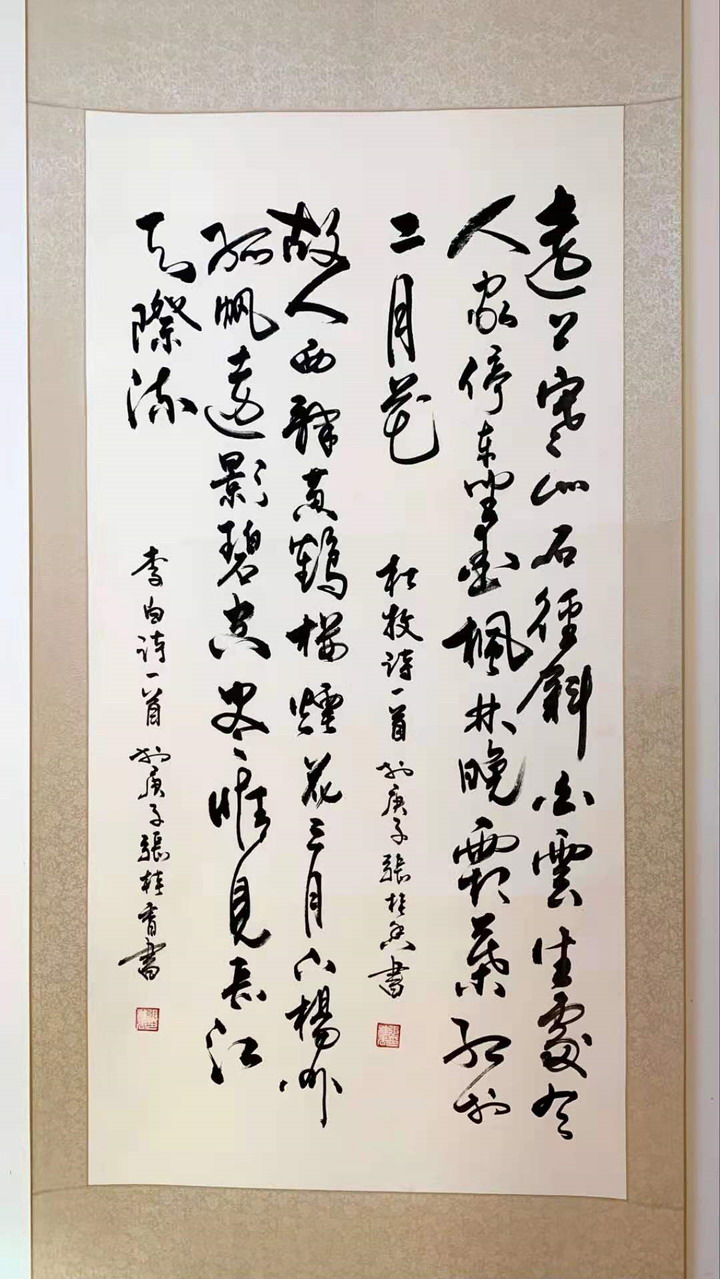 遠上寒山石徑斜白雲生處有
人家停車坐愛楓林晚霜葉紅於
二月花
杜牧詩一首於庚子張桂香書
故人西辭黃鶴楼煙花三月下楊州
孤帆遠影碧空尽唯見長江
天際流
李白詩一首於庚子張桂香書